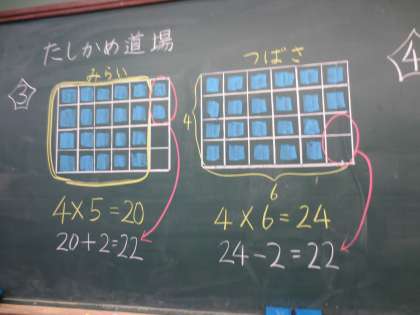 たしかめ道場
③
みらい
4×5=20
20+2=22
つばさ
4
6
4×6=24
24-2=22
4